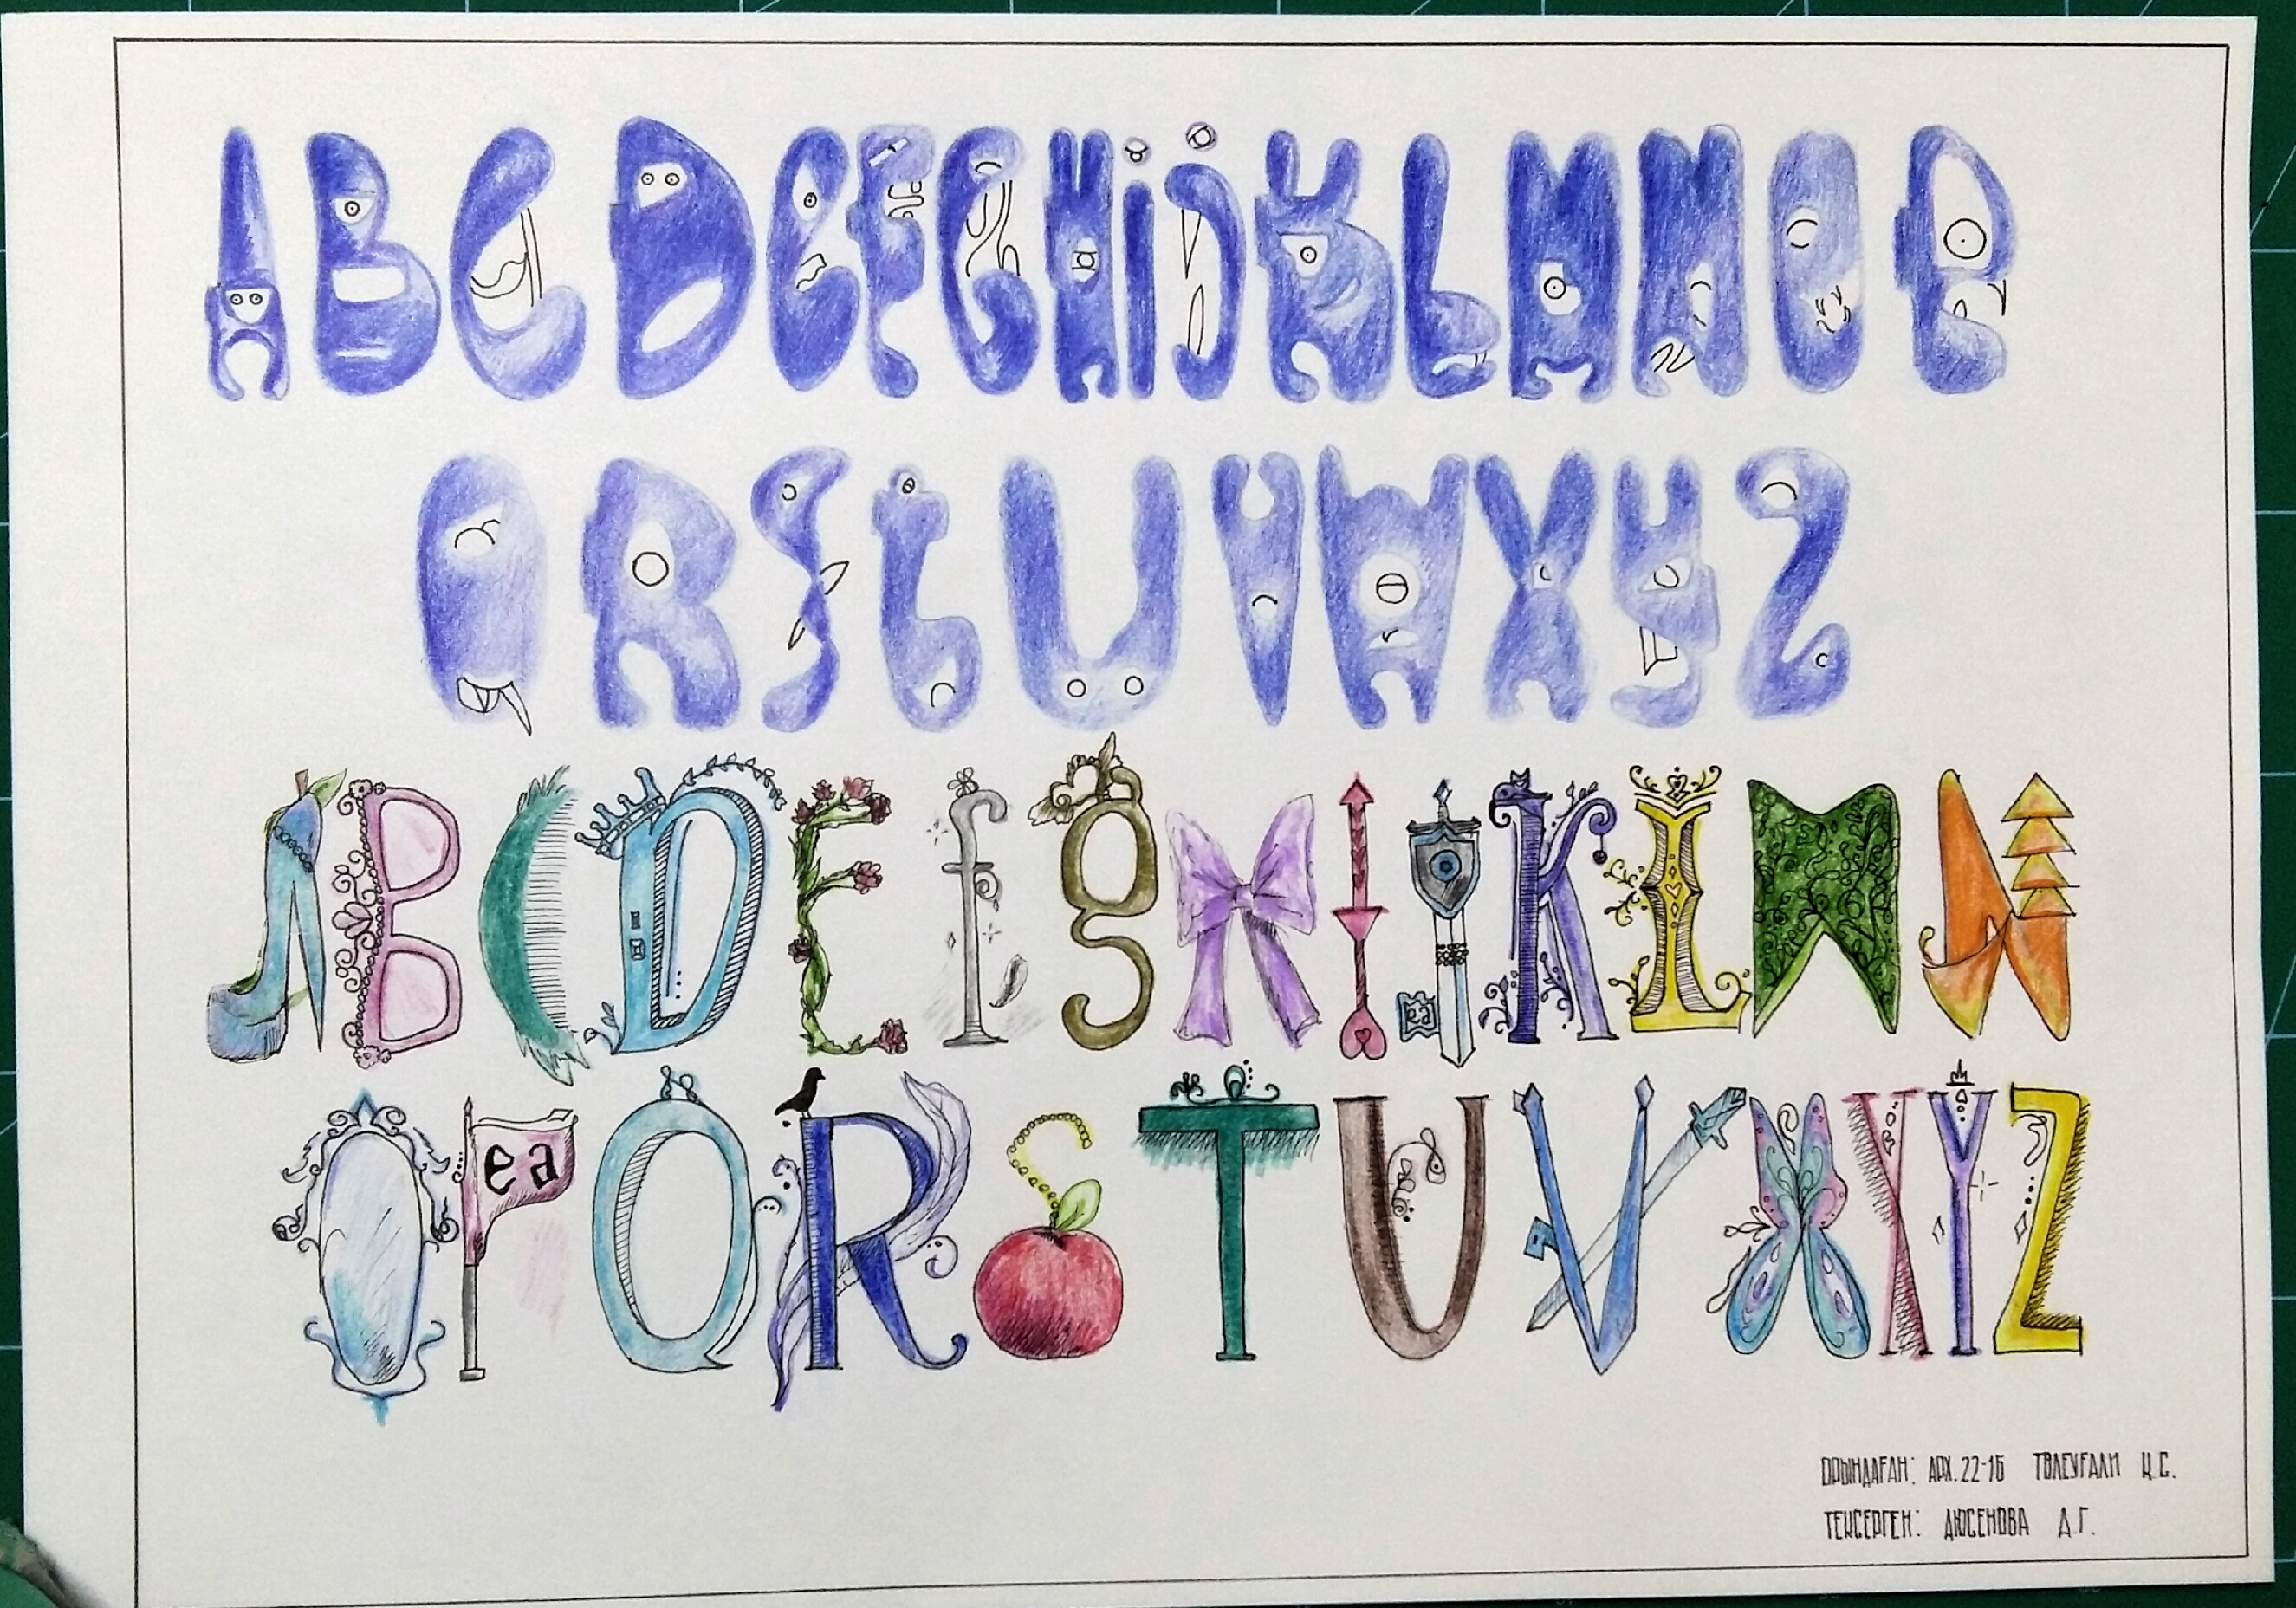 A B C D E F G H i J K L M N O P
Q R S t U V W X Y Z
A B C D E f g H I J K L M N
O P Q R S T U V W X Y Z
ea
ea
ОРЫНДАҒАН: АРХ.22-1Б ТӨЛЕУҒАЛИ К.С.
ТЕКСЕРГЕН: ДЮСЕНОВА Д.Г.